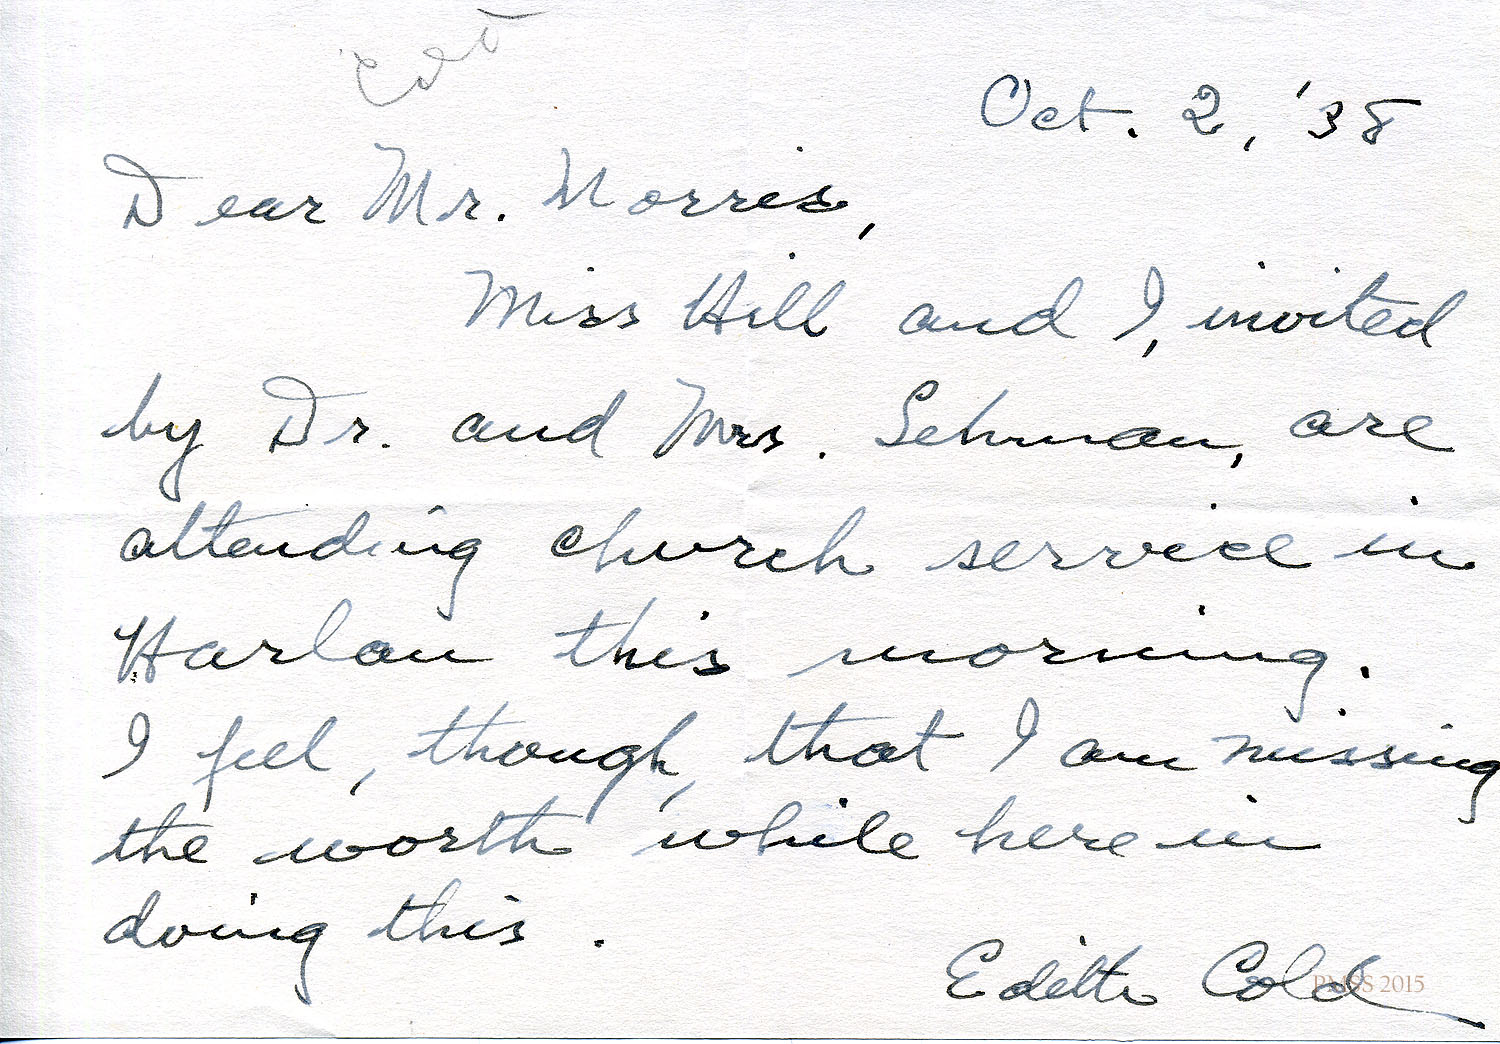 Cold
Oct. 2, '38
Dear Mr. Morris,
Miss Hill and I, invited
by Dr. and Mrs. Lehman, are
attending church service in
Harlan this morning.
I feel, though, that I am missing
the worth while here in
doing this.
Edith Cold
PMSS 2015